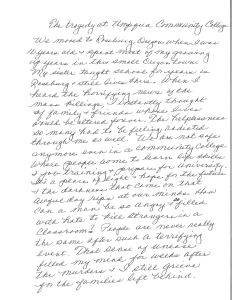 The tragedy at Umpqua Community College
We moved to Roseburg, Oregon when I was
10 years old & spent most of my growing
up years in this small Oregon town.
My sister taught school for years in
Roseburg & still lives there. When I
heard the horrifying news of the
mass killings I instantly thought
of family & friends whose lives
would be altered forever. The helplessness
so many had to be feeling radiated
through me as well. We are not safe
anymore even in a community College
where people come to learn life skills
& job training & prepare for University.
It's a place of light & hope for the future
& the darkness that came on that
day rips at our minds. How
Can a man be so angry & filled
with hate to kill strangers in a
Classroom? People are never really
the same after such a terrifying
event. That sense of unease
filled my mind for weeks after
the murders & I still grieve
for the families left behind.